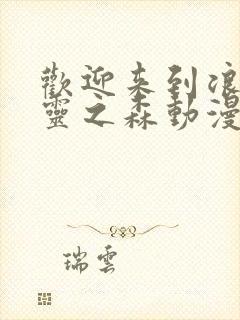 歡迎来到浪
靈之森動漫
瑞雲